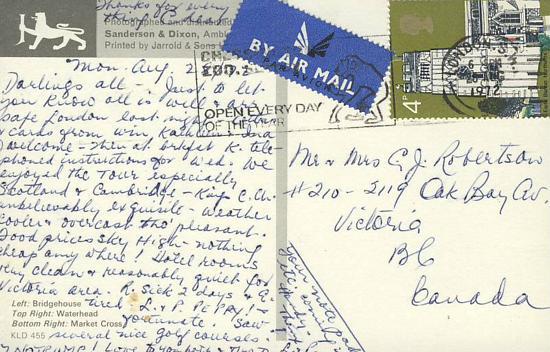 Thanks for every
thing
Photographed and distributed
Sanderson & Dixon, Ambl
Printed by Jarrold & Sons L
BY AIR MAIL
PAR AVION
4P
LONDON S.W.
1972
OPEN EVERY DAY
OF THE YEAR
Mon. Aug 2
Darlings all - Just to let
you know all is well &
safe London last night
& cards from Win, Kathleen
welcome - then at brkfst K. tele-
phoned instructions for Wed. We
enjoyed the Tour especially
Scotland & Cambridge - King C. Ch.
unbelievably exquisite - weather
cooler & overcast tho pleasant.
Food prices sky High - nothing
cheap any where! Hotel rooms
very clean & reasonably quiet for
Victoria area. R. sick 2 days & G.
tired. L. & P. PEPPY! -
fortunate. Saw
several nice golf courses.
NOTRUMP! Love to you both &
Left: Bridgehouse
Top Right: Waterhead
Bottom Right: Market Cross
KLD 455
Mr & Mrs G J. Robertson
#210-2119 Oak Bay Av.
Victoria
BC
Canada
your note pad